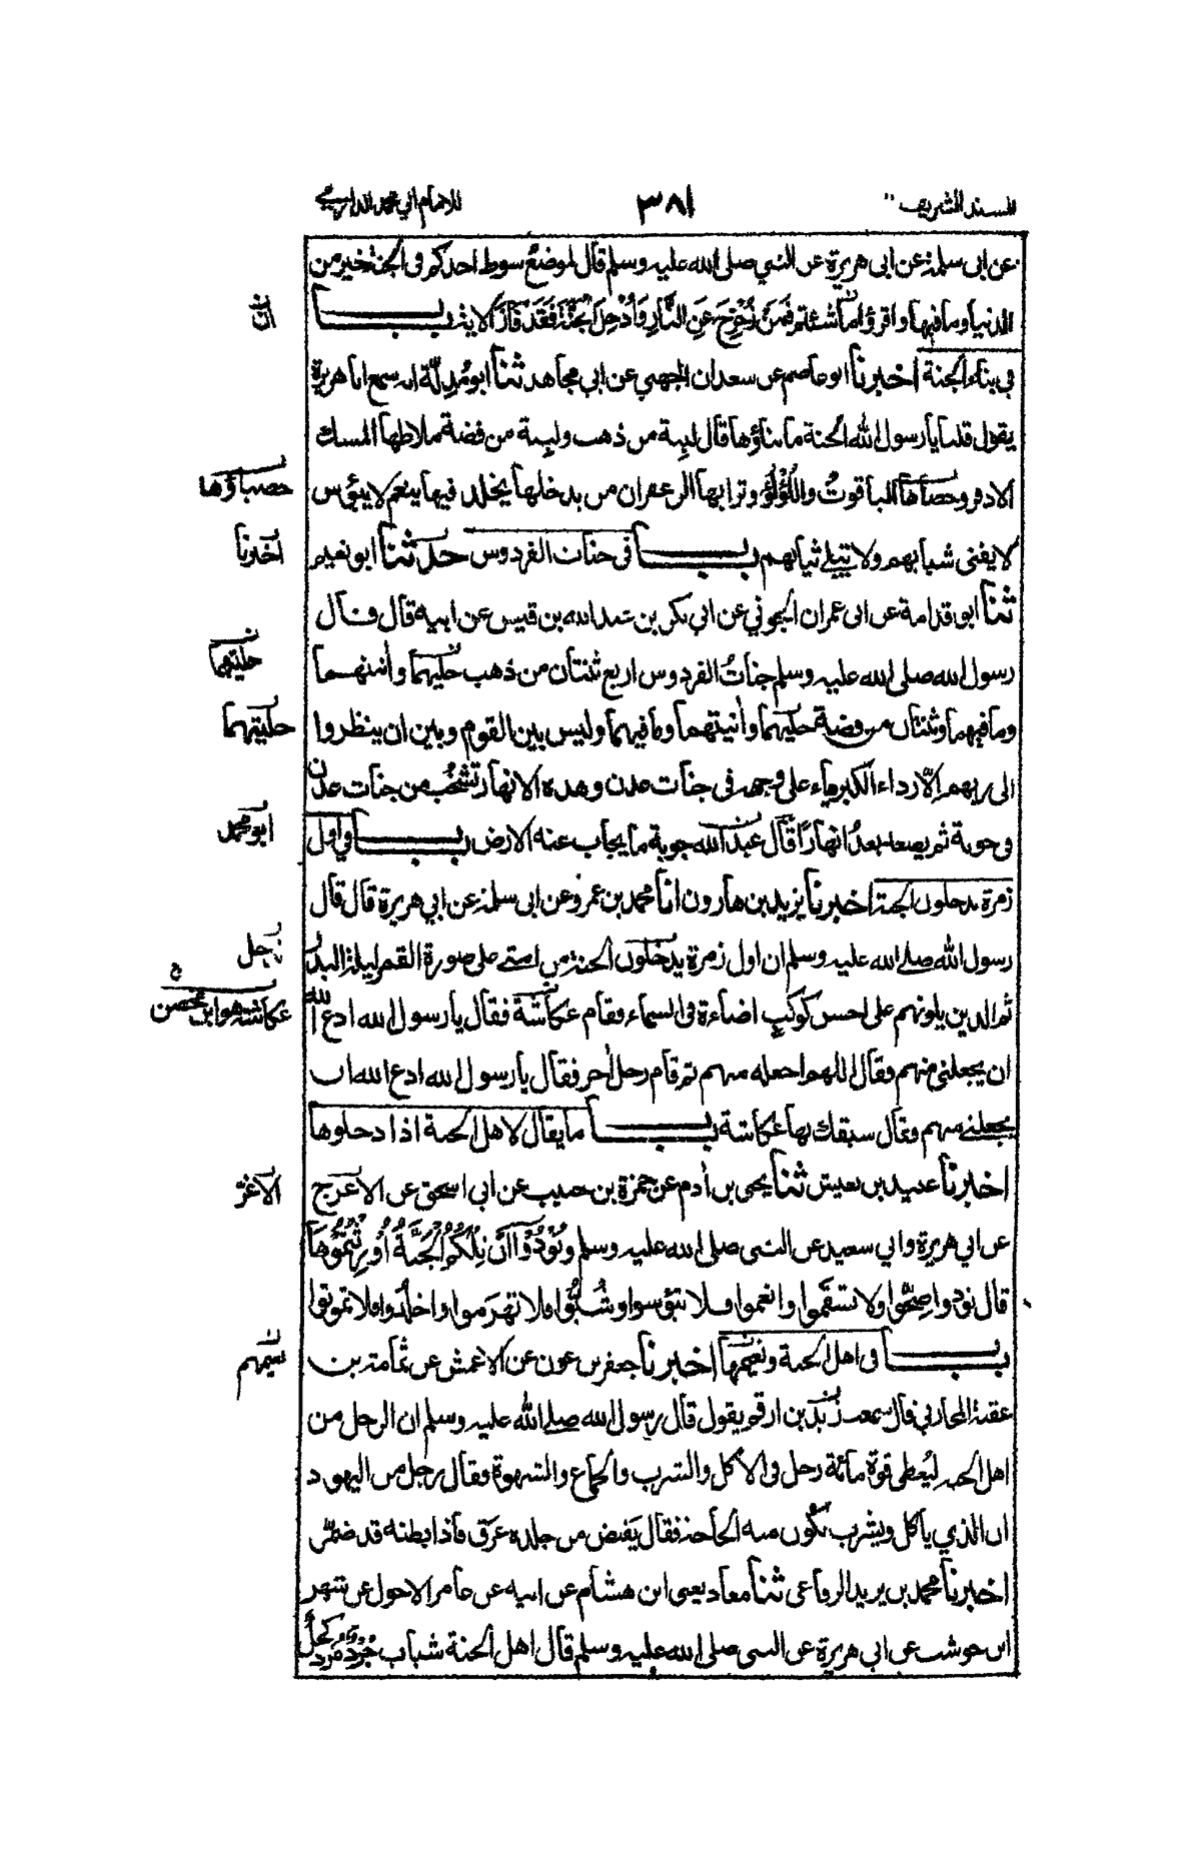 المسند الشريف
٣٨١
للامام ابي محمد الدارمي
عن ابى سلمة عن ابى هريرة عن النبي صلى الله عليه وسلم قال لموضع سوط احدكم فى الجنة خير من
الدنيا وما فيها واقرؤا ما شئتم فَمَنْ زُحْزِحَ عَنِ النَّارِ وَأُدْخِلَ الْجَنَّةَ فَقَدْ فَازَ الاية باب
ان
فى بناء الجنة اخبرنا ابو عاصم عن سعدان الجهني عن ابي مجاهد ثنا ابو مُدِلّة انه سمع ابا هريرة
يقول قلنا يا رسول الله الجنة ما بناؤها قال لبنة من ذهب ولبنة من فضة ملاطها المسك
الاذفر وحصاها الياقوتُ واللؤلؤ وترابها الزعفران من يدخلها يخلد فيها ينعم لا يبؤس
حصباؤها
لا يفنى شبابهم ولا تبلى ثيابهم باب فى جنات الفردوس حدثنا ابو نعيم
اخبرنا
ثنا ابو قدامة عن ابى عمران الجوني عن ابي بكر بن عبد الله بن قيس عن ابيه قال قال
رسول الله صلى الله عليه وسلم جناتُ الفردوس اربع ثنتان من ذهب حليهما وأنيتهما
حليتهما
وما فيهما وثنتان من فضة حليهما وأنيتهما وما فيهما وليس بين القوم وبين ان ينظروا
حليتهما
الى ربهم إلّا رداء الكبرياء على وجهه فى جنات عدن وهذه الانهار تشخُب من جنات عدن
فى جوبة ثم يصعد بعدُ انهارًا قال عبد الله جوبة ما يجاب عنه الارض باب في اول
ابو محمد
زمرة يدخلون الجنة اخبرنا يزيد بن هارون انا محمد بن عمرو عن ابى سلمة عن ابي هريرة قال قال
رسول الله صلى الله عليه وسلم ان اول زمرة يدخلون الجنة من امتى على صورة القمر ليلة البدر
ثم الذين يلونهم على احسن كوكب اضاءة فى السماء فقام عكاشة فقال يا رسول الله ادع الله
عكاشة هو ابن محصن
ان يجعلنى منهم فقال اللهم اجعله منهم ثم قام رجل أخر فقال يا رسول الله ادع الله ان
يجعلني منهم فقال سبقك بها عكاشة باب ما يقال لاهل الجنة اذا دخلوها
اخبرنا عبيد بن يعيش ثنا يحيى بن أدم عن حمزة بن حبيب عن ابى اسحق عن الاعرج
الاغر
عن ابي هريرة وابي سعيد عن النبى صلى الله عليه وسلم وَنُوْدُوْا أَنْ تِلْكُمُ الْجَنَّةُ أُوْرِثْتُمُوْهَا
قال نودوا صِحُّوا ولا تسقَموا وانعموا فلا تبؤسوا وشُبُّوا فلا تهرَموا واخلُدوا فلا تموتوا
باب فى اهل الجنة ونعيمها اخبرنا جعفر بن عون عن الاعمش عن ثمامة بن
عقبة المحاربي قال سمعت زيد بن ارقم يقول قال رسول الله صلى الله عليه وسلم ان الرجل من
اهل الجنة ليُعطى قوة مائة رجل فى الأكل والشرب والجماع والشهوة فقال رجل من اليهود
ان الذي ياكل ويشرب تكون منه الحاجة فقال يَفيض من جلده عرَق فاذا بطنه قد ضمر
اخبرنا محمد بن يزيد الرفاعى ثنا معاذ يعنى ابن هشام عن ابيه عن عامر الاحول عن شهر
ابن حوشب عن ابى هريرة عن النبى صلى الله عليه وسلم قال اهل الجنة شباب جُرْدٌ مُرْدٌ كحلٌ